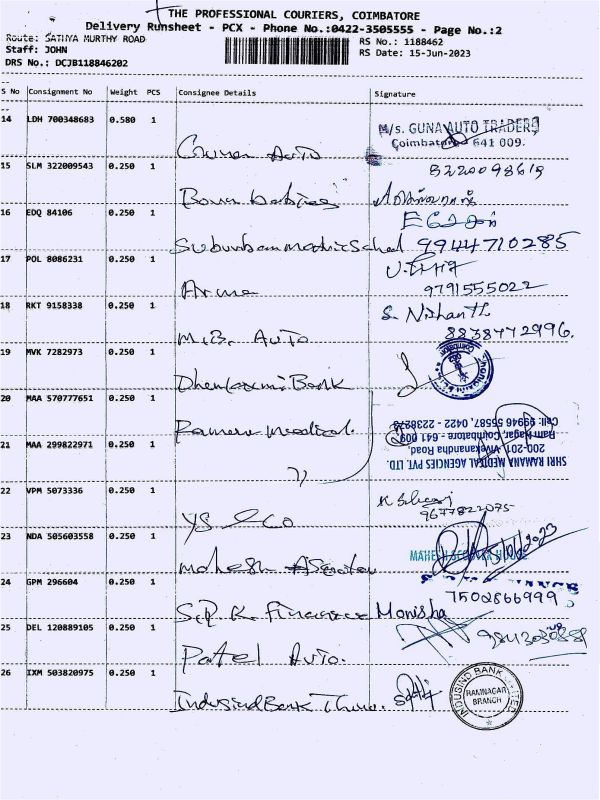 THE PROFESSIONAL COURIERS, COIMBATORE
Delivery Runsheet - PCX - Phone No.:0422-3505555 - Page No.:2
Route: SATHYA MURTHY ROAD
RS No.: 1188462
Staff: JOHN
RS Date: 15-Jun-2023
DRS No.: DCJB118846202
S No Consignment No Weight PCS Consignee Details Signature
14 LDH 700348683 0.580 1 M/S. GUNA AUTO TRADERS
Coimbatore 641 009.
Guna Auto
15 SLM 322009543 0.250 1 8220098619
16 EDQ 84106 0.250 1
Suburban Matric School 9944710285
17 POL 8086231 0.250 1
9791555022
18 RKT 9158338 0.250 1 S. Nishanth
M.B. Auto 8838772996.
19 MVK 7282973 0.250 1
Dhanlaxmi Bank
20 MAA 570777651 0.250 1
Ramana Medical.
SHRI RAMANA MEDICAL AGENCIES PVT. LTD.
200-201, Vivekanandha Road,
Ram Nagar, Coimbatore - 641 009
21 MAA 299822971 0.250 1
22 VPM 5073336 0.250 1
9677822075
YS & Co
23 NDA 505603558 0.250 1 MAHESH
15/06/2023
Mahesh
24 GPM 296604 0.250 1 7502866999
S.R.K. Finance Monisha
25 DEL 120889105 0.250 1
Patel Auto.
26 IXM 503820975 0.250 1 INDUSIND BANK LIMITED
RAMNAGAR
BRANCH
Indusind Bank